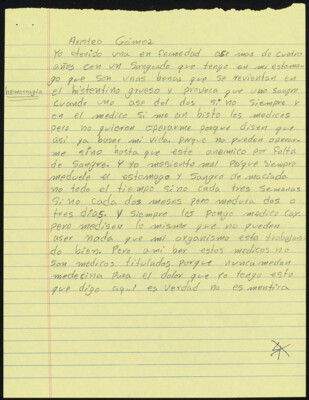 Arnteo Gómez
Yo stenido una en fermedad ase mas de cuatro
años con un sangrado que tengo en mi estoma-
go que son unas benas que se revientan en
hemorragia
el histentino grueso y proveca que uno sangre
cuando uno ase del dos si no siempre y
en el medico si me an bisto los medicos
pero no quieren operarme porque disen que
asi ya baser mi vida porque no pueden operar-
me sino hasta que este anemico por falta
de sangre. Y yo mesiento mal porque siempre
meduele el estomago y sangro de maciado
no todo el tiempo sino cada tres semanas
si no cada dos meses pero medura dos o
tres dias. Y siempre les pongo medico cop
pero medisen lo mismo que no pueden
aser nada que mi organismo esta trabajan-
do bien. Pero ami ber estos medicos no
son medicos titulados porque nunca medan
medesina para el dolor que yo tengo esto
que digo aqui es verdad no es mentira